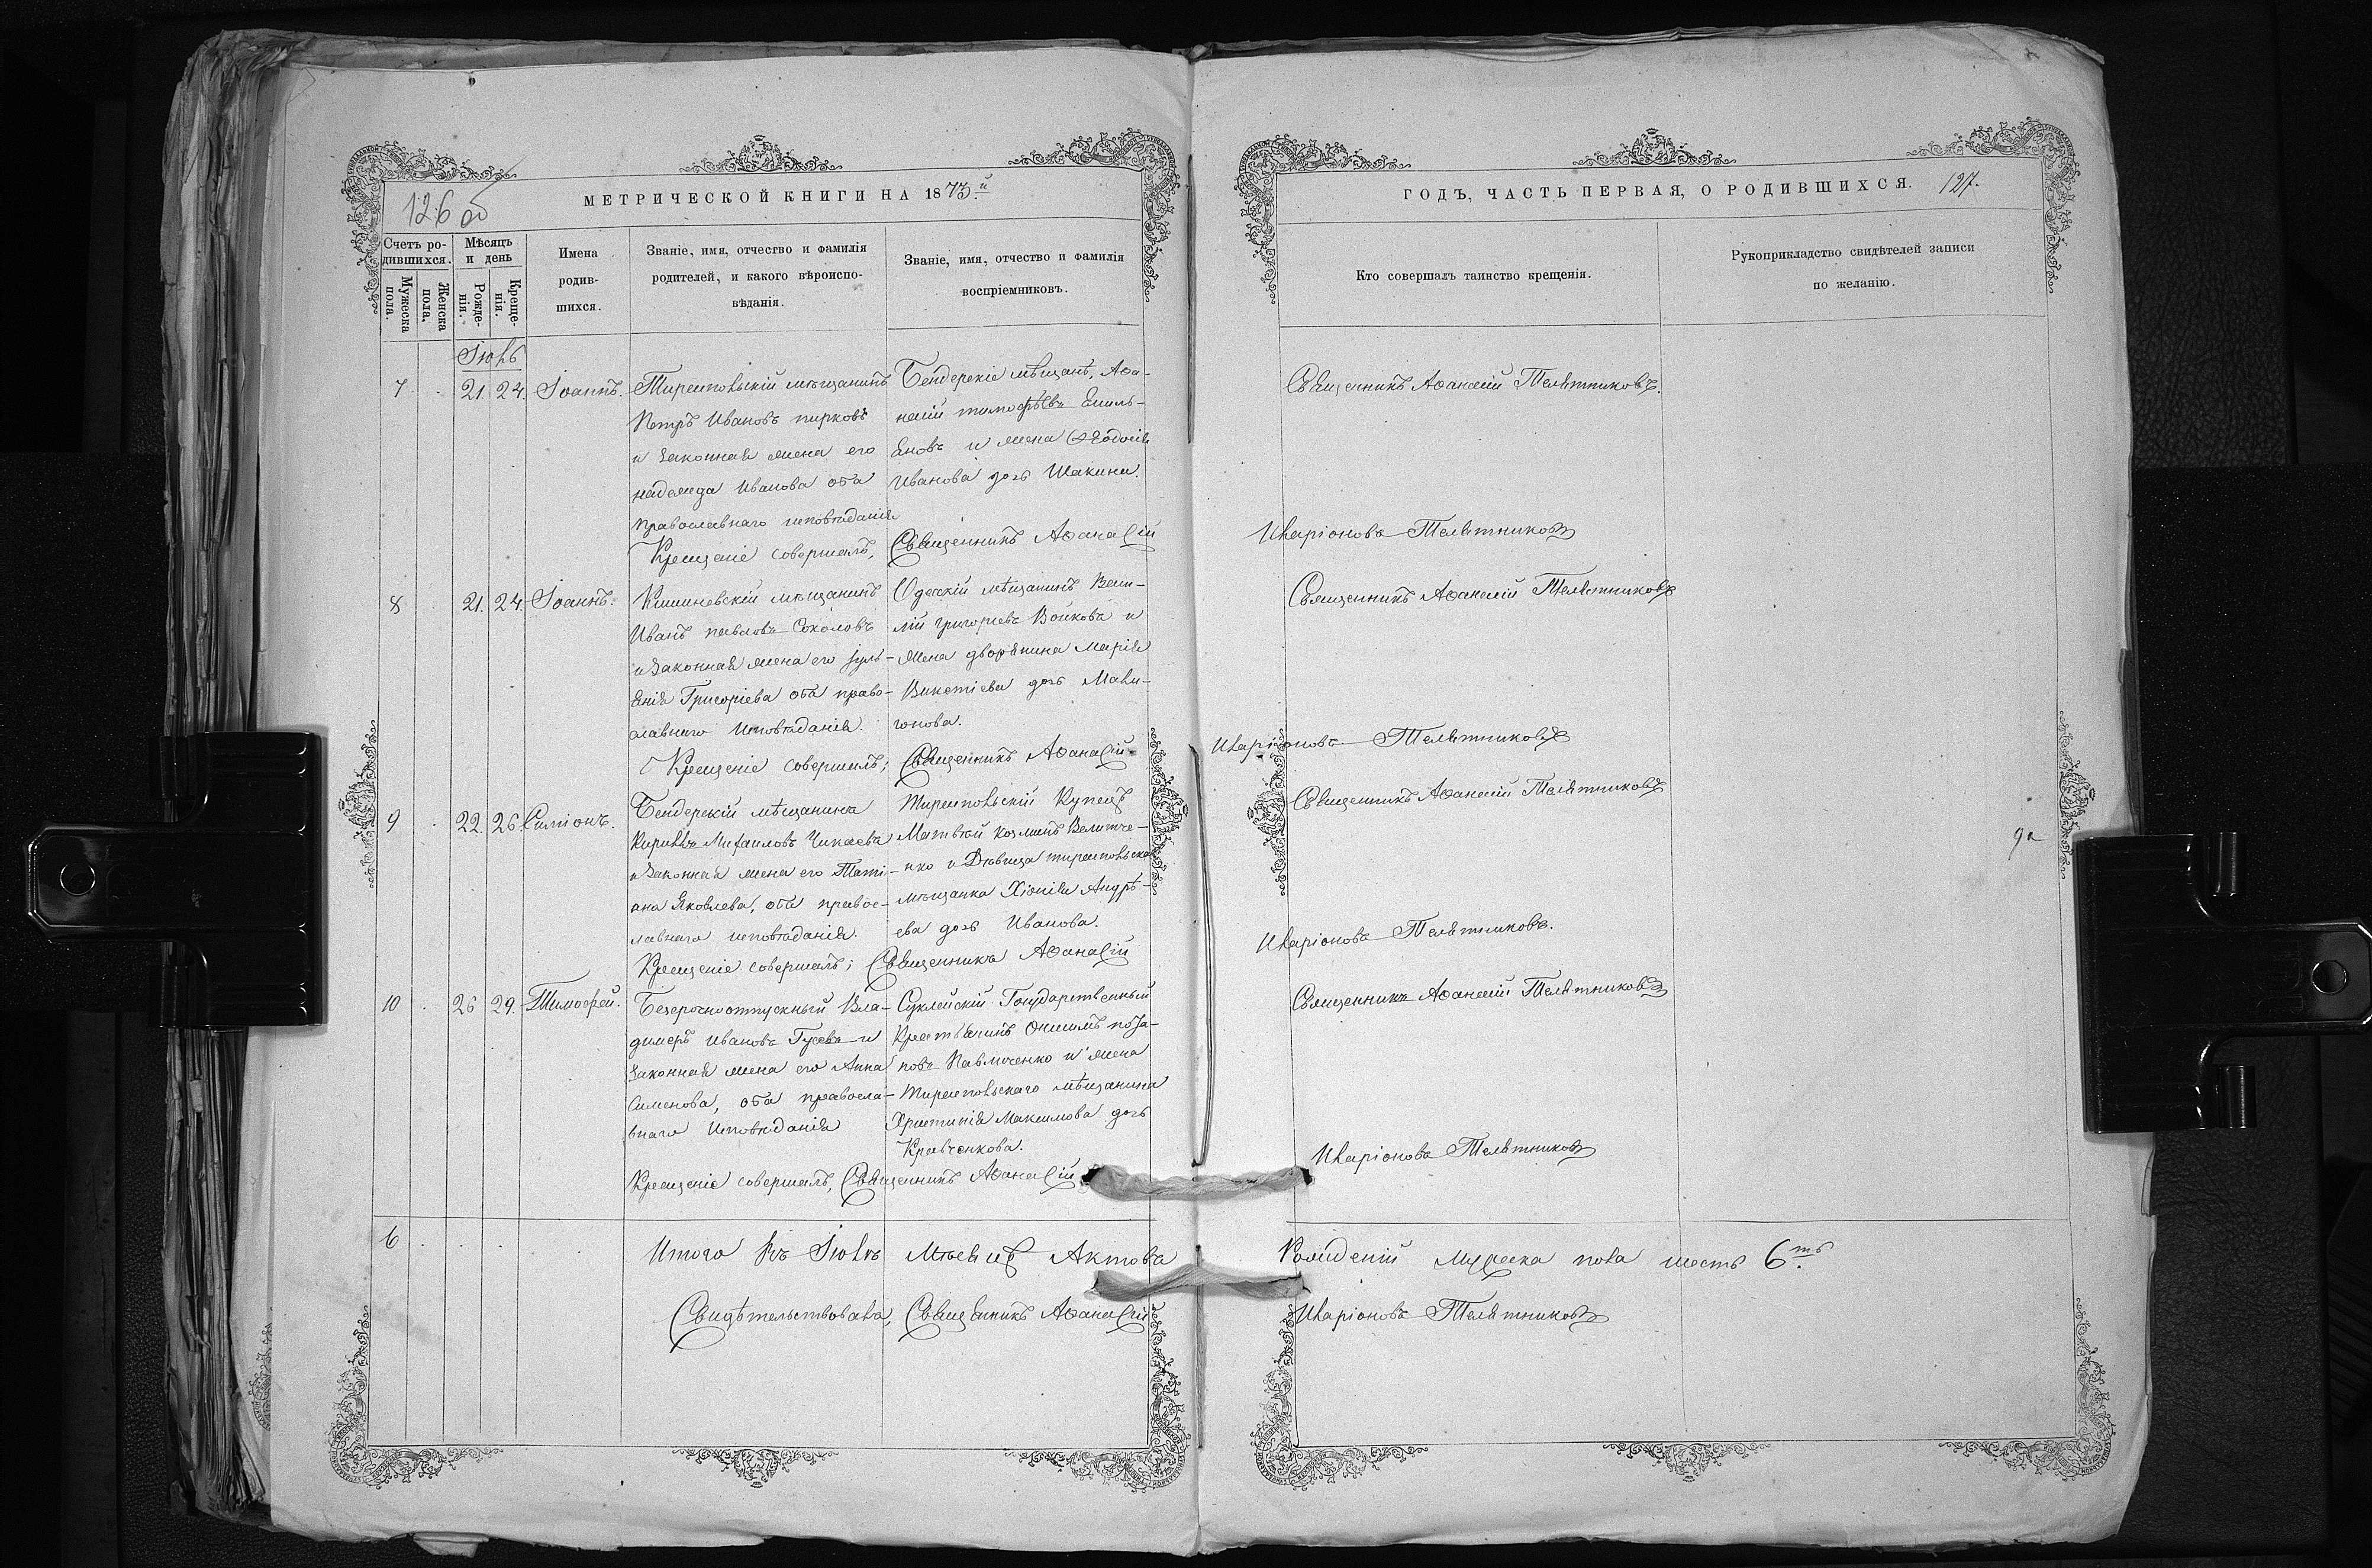 126 об
МЕТРИЧЕСКОЙ КНИГИ НА 1873.й
Счетъ ро-
дившихся.
Мужеска
пола.
Женска
пола.
Мѣсяцъ
и день
Рожде-
нія.
Креще-
нія.
Имена
родив-
шихся.
Званіе, имя, отчество и фамилія
родителей, и какого вѣроиспо-
вѣданія.
Званіе, имя, отчество и фамилія
воспріемниковъ.
Іюль
7 . 21. 24. Іоаннъ.
Тираспольскій мѣщанинъ
Петръ Ивановъ пирковъ
и законная жена его
надежда Иванова оба
православнаго исповѣданія
Крещеніе совершалъ,
Бендерскіе мѣщане, Аѳа-
насій тимофѣевъ Емель-
яновъ и жена Ѳеодосія
Иванова дочь Шакина.
Священникъ Аѳанасій
8 . 21. 24. Іоаннъ.
Кишиневскій мѣщанинъ
Иванъ павловъ Соколовъ
и законная жена его Іуль-
янія Григоріева оба право-
славнаго исповѣданія.
Крещеніе совершалъ;
Одесскій мѣщанинъ Васи-
лій григорьевъ Волковъ и
жена дворянина Марія
Викетіева дочь
гонова.
Священникъ Аѳанасій
9 . 22. 26. Симіонъ.
Бендерскій мѣщанинъ
Кириллъ Михаиловъ Чипаевъ
и законная жена его Таті-
ана Яковлева, оба правос-
лавнаго исповѣданія.
Крещеніе совершалъ;
Тираспольскій Купецъ
Матвѣй козминъ Величе-
нко и Дѣвица тираспольска
мѣщанка Хіонія Андрѣ-
ева дочь Иванова.
Священникъ Аѳанасій
10 . 26 29. Тимоѳей.
Безсрочноотпускный Вла-
димеръ Ивановъ Гусевъ и
законная жена его Анна
Сименова, оба правосла-
внаго исповѣданія
Крещеніе совершалъ,
Суклейскій Государственный
Крестьянинъ Онисимъ
повъ Павличенко и жена
тираспольскаго мѣщанина
Христинія Максимова дочь
Кравченкова.
Священникъ Аѳанасій
6 . . . .
Итого въ Іюлѣ Мѣсяцѣ Актовъ
Свидѣтельствовалъ, Священникъ Аѳанасій
ГОДЪ, ЧАСТЬ ПЕРВАЯ, О РОДИВШИХСЯ. 127.
Кто совершалъ таинство крещенія.
Рукоприкладство свидѣтелей записи
по желанію.
Священникъ Аѳанасій Телятниковъ.
Иларіоновъ Телятниковъ
Священникъ Аѳанасій Телятниковъ
Иларіоновъ Телятниковъ
Священникъ Аѳанасій Телятниковъ
Иларіоновъ Телятниковъ.
Священникъ Аѳанасій Телятниковъ
Иларіоновъ Телятниковъ
Рожденій мужеска пола шесть 6.ть
Иларіоновъ Телятниковъ